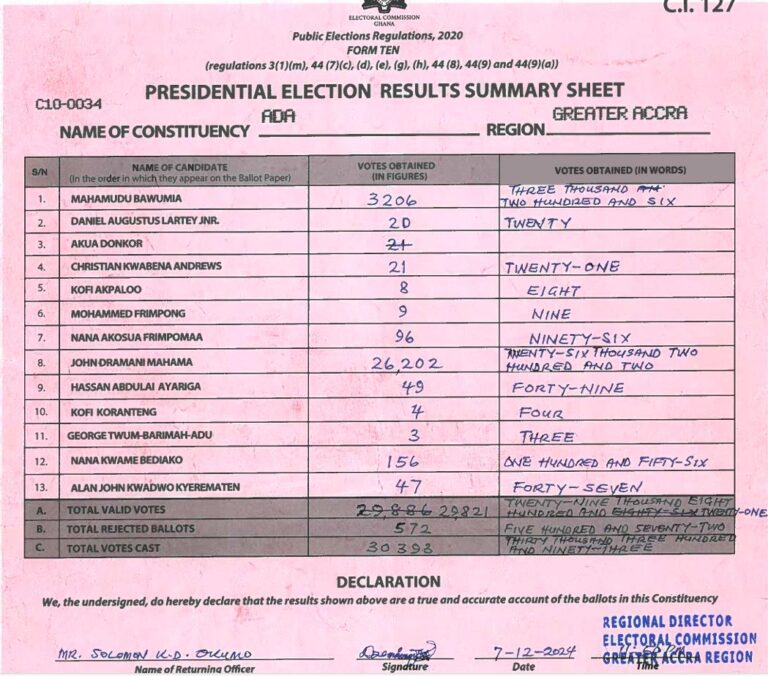 C.I. 127
ELECTORAL COMMISSION
GHANA
Public Elections Regulations, 2020
FORM TEN
(regulations 3(1)(m), 44 (7)(c), (d), (e), (g), (h), 44 (8), 44(9) and 44(9)(a))
PRESIDENTIAL ELECTION RESULTS SUMMARY SHEET
C10-0034
NAME OF CONSTITUENCY ADA REGION GREATER ACCRA
S/N NAME OF CANDIDATE (In the order in which they appear on the Ballot Paper) VOTES OBTAINED (IN FIGURES) VOTES OBTAINED (IN WORDS)
1. MAHAMUDU BAWUMIA 3206 THREE THOUSAND TWO HUNDRED AND SIX
2. DANIEL AUGUSTUS LARTEY JNR. 20 TWENTY
3. AKUA DONKOR 21
4. CHRISTIAN KWABENA ANDREWS 21 TWENTY-ONE
5. KOFI AKPALOO 8 EIGHT
6. MOHAMMED FRIMPONG 9 NINE
7. NANA AKOSUA FRIMPOMAA 96 NINETY-SIX
8. JOHN DRAMANI MAHAMA 26,202 TWENTY-SIX THOUSAND TWO HUNDRED AND TWO
9. HASSAN ABDULAI AYARIGA 49 FORTY-NINE
10. KOFI KORANTENG 4 FOUR
11. GEORGE TWUM-BARIMAH-ADU 3 THREE
12. NANA KWAME BEDIAKO 156 ONE HUNDRED AND FIFTY-SIX
13. ALAN JOHN KWADWO KYEREMATEN 47 FORTY-SEVEN
A. TOTAL VALID VOTES 29,886 29,821 TWENTY-NINE THOUSAND EIGHT HUNDRED AND EIGHTY-SIX TWENTY-ONE
B. TOTAL REJECTED BALLOTS 572 FIVE HUNDRED AND SEVENTY-TWO
C. TOTAL VOTES CAST 30393 THIRTY THOUSAND THREE HUNDRED AND NINETY-THREE
DECLARATION
We, the undersigned, do hereby declare that the results shown above are a true and accurate account of the ballots in this Constituency
REGIONAL DIRECTOR
ELECTORAL COMMISSION
GREATER ACCRA REGION
MR. SOLOMON K.D. 7-12-2024
Name of Returning Officer Signature Date Time